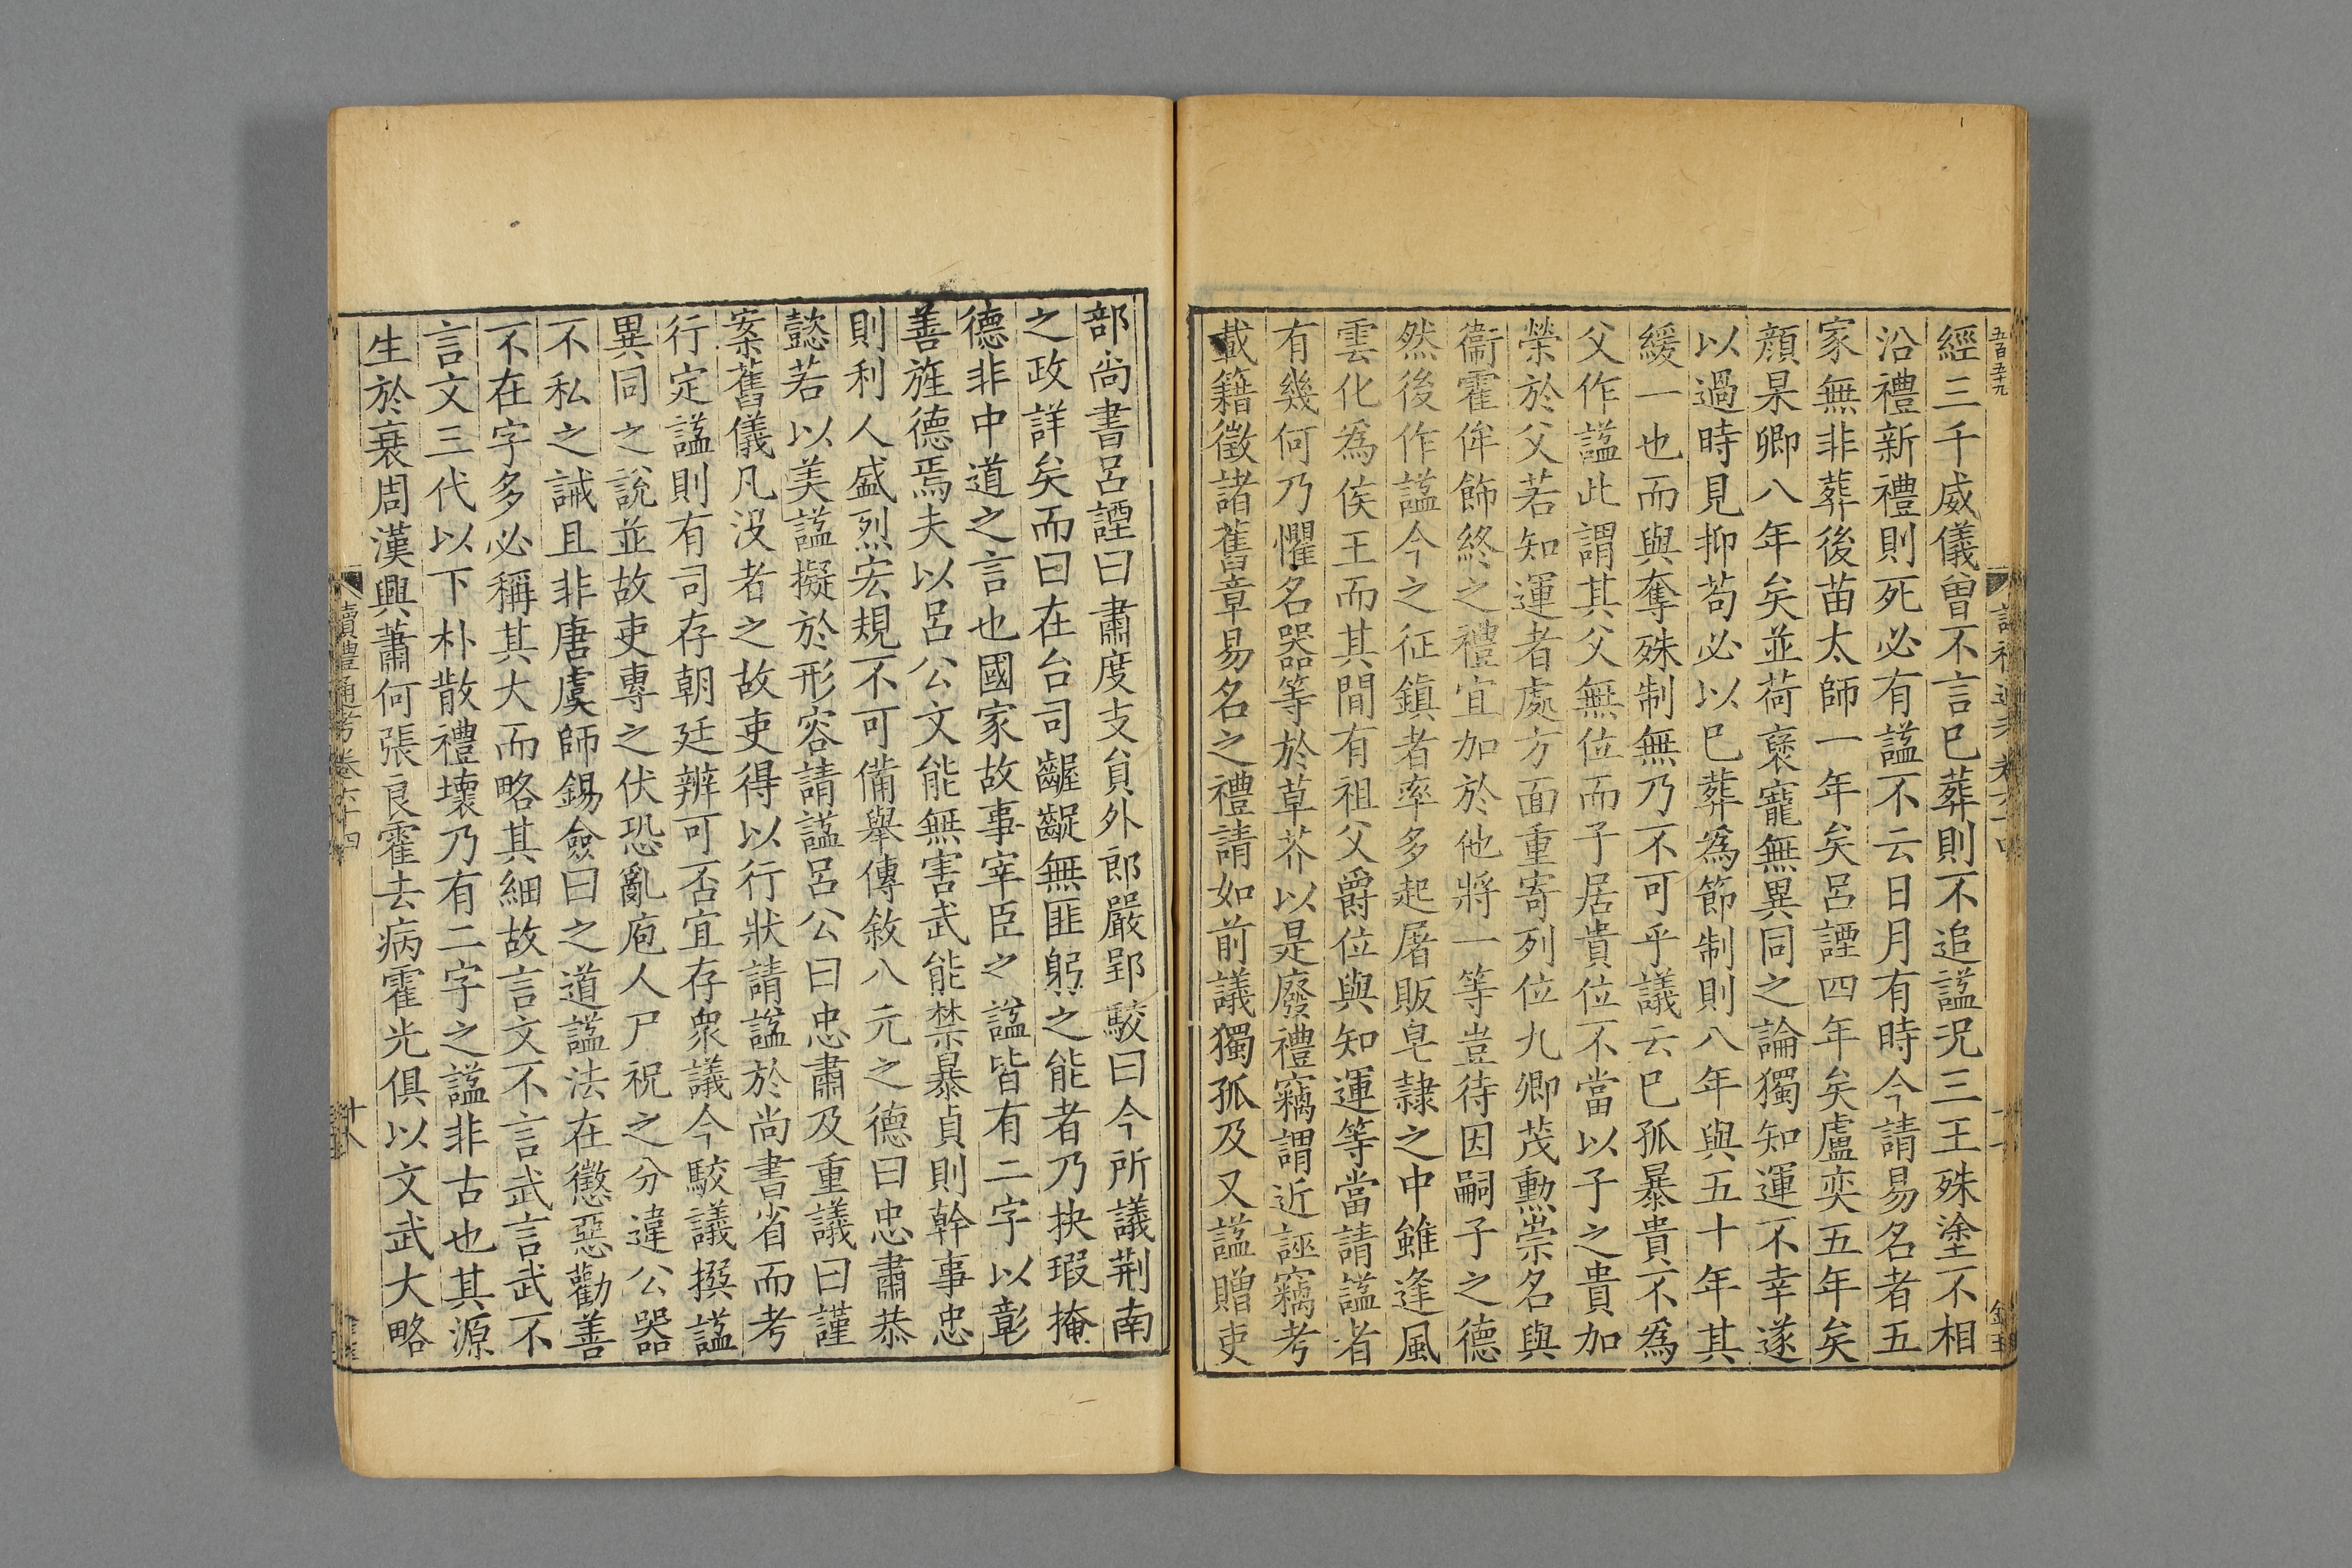 五百五十九
經三千威儀曾不言巳葬則不追諡况三王殊塗不相
沿禮新禮則死必有諡不云日月有時今請易名者五
家無非葬後苗太師一年矣呂諲四年矣盧奕五年矣
顔杲卿八年矣並荷褒寵無異同之論獨知運不幸遂
以過時見抑苟必以巳葬爲節制則八年與五十年其
緩一也而與奪殊制無乃不可乎議云巳孤暴貴不爲
父作諡此謂其父無位而子居貴位不當以子之貴加
榮於父若知運者處方面重寄列位九卿茂勲崇名與
衞霍侔飾終之禮宜加於他將一等豈待因嗣子之德
然後作諡今之征鎮者率多起屠販皂隸之中雖逢風
雲化爲侯王而其間有祖父爵位與知運等當請諡者
有幾何乃懼名器等於草芥以是廢禮竊謂近誣竊考
載籍徵諸舊章易名之禮請如前議獨孤及又諡贈吏
部尚書呂諲曰肅度支員外郎嚴郢駮曰今所議荆南
之政詳矣而曰在台司齷齪無匪躬之能者乃抉瑕掩
德非中道之言也國家故事宰臣之諡皆有二字以彰
善旌德焉夫以呂公文能無害武能禁暴貞則幹事忠
則利人盛烈宏規不可備舉傳敘八元之德曰忠肅恭
懿若以美諡擬於形容請諡呂公曰忠肅及重議曰謹
案舊儀凡没者之故吏得以行狀請諡於尚書省而考
行定諡則有司存朝廷辨可否宜存衆議今駮議撰諡
異同之說並故吏專之伏恐亂庖人尸祝之分違公器
不私之誡且非唐虞師錫僉曰之道諡法在懲惡勸善
不在字多必稱其大而略其細故言文不言武言武不
言文三代以下朴散禮壞乃有二字之諡非古也其源
生於衰周漢興蕭何張良霍去病霍光俱以文武大略
讀禮通考卷六十四
十八